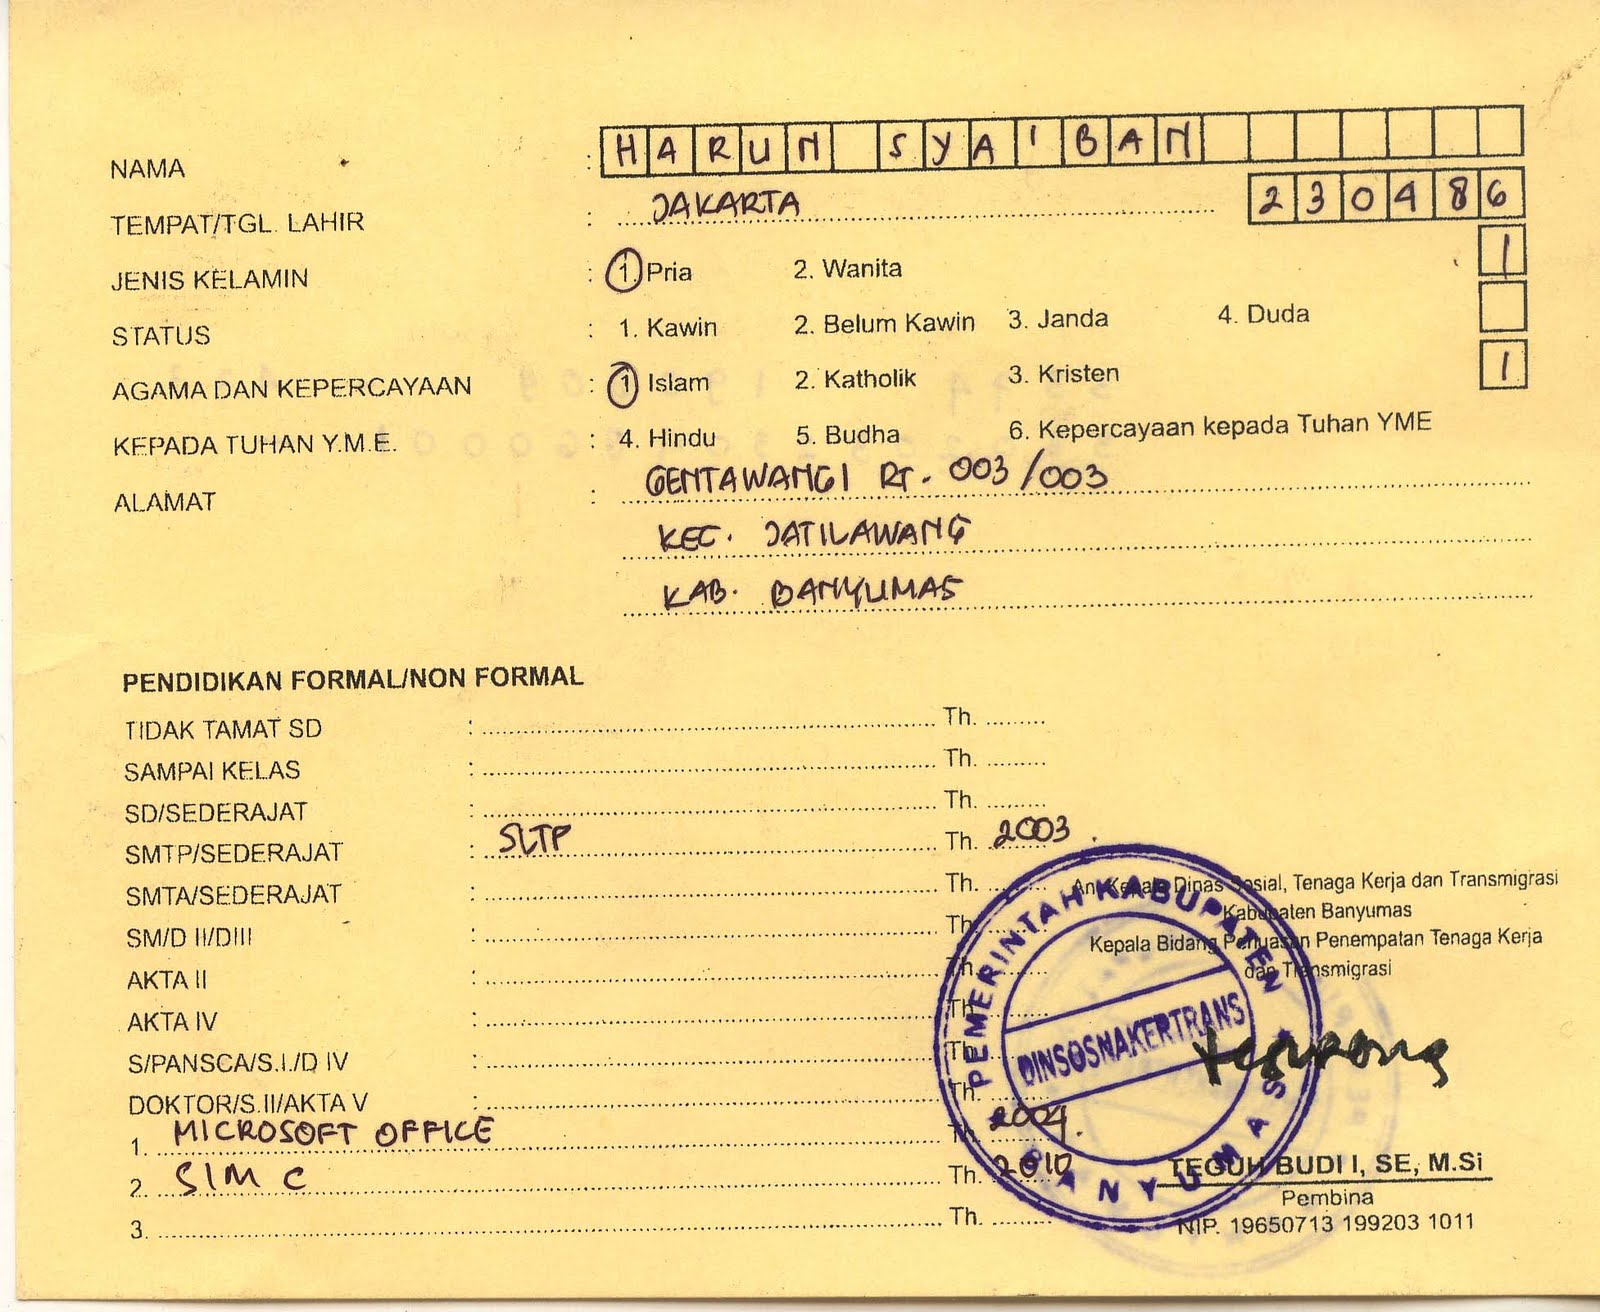 NAMA : HARUN SYA'BAN
TEMPAT/TGL. LAHIR : JAKARTA 230486
JENIS KELAMIN : 1. Pria 2. Wanita 1
STATUS : 1. Kawin 2. Belum Kawin 3. Janda 4. Duda
AGAMA DAN KEPERCAYAAN : 1 Islam 2. Katholik 3. Kristen 1
KEPADA TUHAN Y.M.E. : 4. Hindu 5. Budha 6. Kepercayaan kepada Tuhan YME
ALAMAT : GENTAWANGI RT. 003/003
KEC. JATILAWANG
KAB. BANYUMAS
PENDIDIKAN FORMAL/NON FORMAL
TIDAK TAMAT SD : Th.
SAMPAI KELAS : Th.
SD/SEDERAJAT : Th.
SMTP/SEDERAJAT : SLTP Th. 2003.
SMTA/SEDERAJAT : Th.
SM/D II/DIII : Th.
AKTA II : Th.
AKTA IV : Th.
S/PANSCA/S.I./D IV : Th.
DOKTOR/S.II/AKTA V : Th.
1. MICROSOFT OFFICE Th. 2004.
2. SIM C Th. 2010
3. Th.
An. Kepala Dinas Sosial, Tenaga Kerja dan Transmigrasi
Kabupaten Banyumas
Kepala Bidang Penempatan Tenaga Kerja
dan Transmigrasi
PEMERINTAH KABUPATEN
DINSOSNAKERTRANS
BANYUMAS
TEGUH BUDI I, SE, M.Si
Pembina
NIP. 19650713 199203 1011